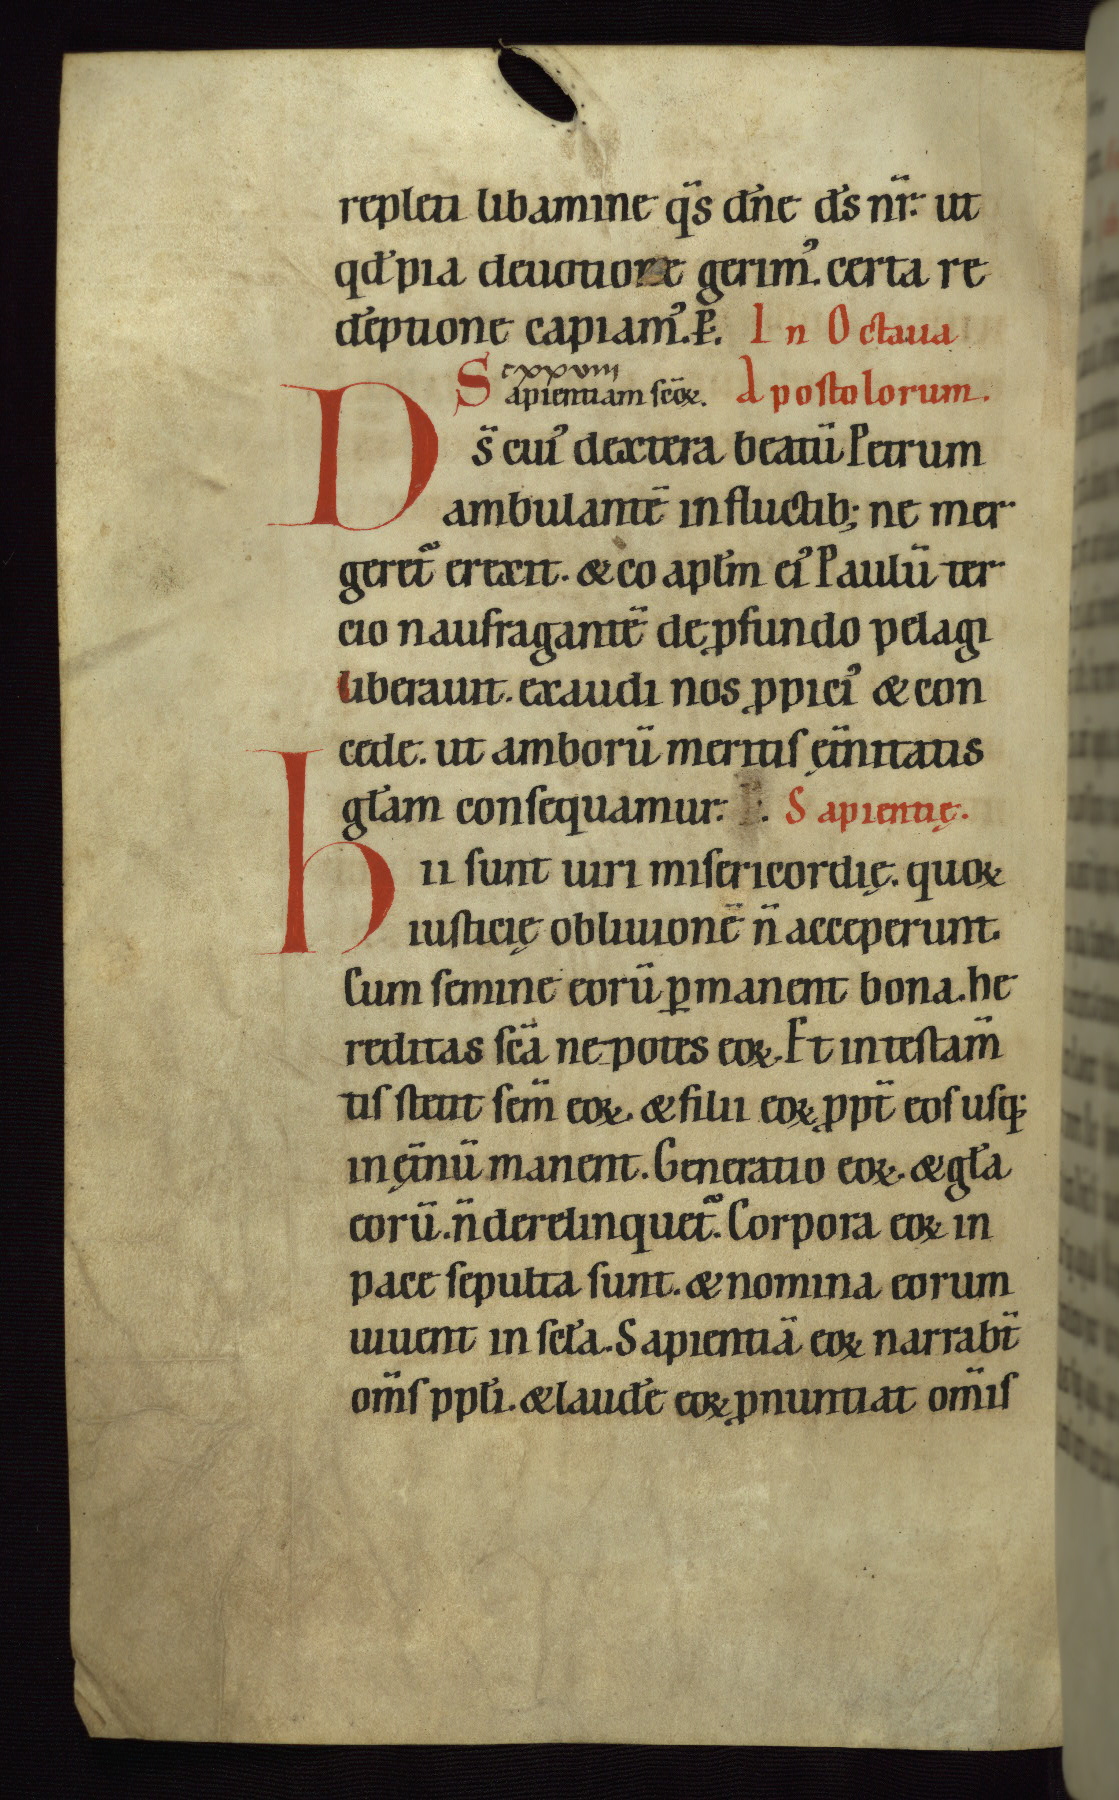 repleti libamine q̅s dn̅e d̅s nr̅. ut
qd̅ pia deuotione gerimꝰ. certa re
de̅ptione capiamꝰ. P̱. In Octaua
cxxviii
Sapientiam sc̅oꝝ. Apostolorum.
Ds̅ cuiꝰ dextera beatu̅ Petrum
ambulante̅ in fluctib; ne mer
geret᷑ erexit. & coap̅lm eiꝰ Paulu̅ ter
cio naufragante̅ de ꝓfundo pelagi
liberauit. exaudi nos ꝓpiciꝰ & con
cede. ut amboru̅ meritiſ ęt̅nitatis
gl̅am conſequamur. P̱. Sapientię.
hii ſunt uiri miſericordię. quoꝝ
iuſticię obliuione̅ n̅ acceperunt.
Cum ſemine eoru̅ ꝑmanent bona. he
reditas ſc̅a nepotes eoꝝ. Et in teſtam̅
tiſ ſtetit ſem̅ eoꝝ. & filii eoꝝ ꝓpt̅ eoſ uſq;
in ęt̅nu̅ manent. Generatio eoꝝ. & gl̅a
eoru̅. n̅ derelinquet᷑. Corpora eoꝝ in
pace ſepulta ſunt. & nomina eorum
uiuent in ſcl̅a. Sapientia̅ eoꝝ narrabt̅
om̅ſ ppl̅i. & laude̅ eoꝝ ꝓnuntiat om̅iſ